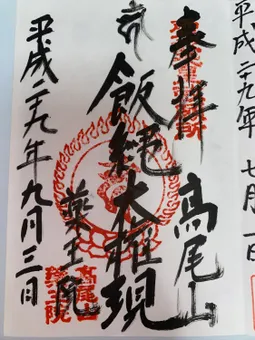 奉拝
高尾山
飯縄大権現
薬王院
平成二十九年九月三日
平成二十九年七月一日
高尾山
薬王院